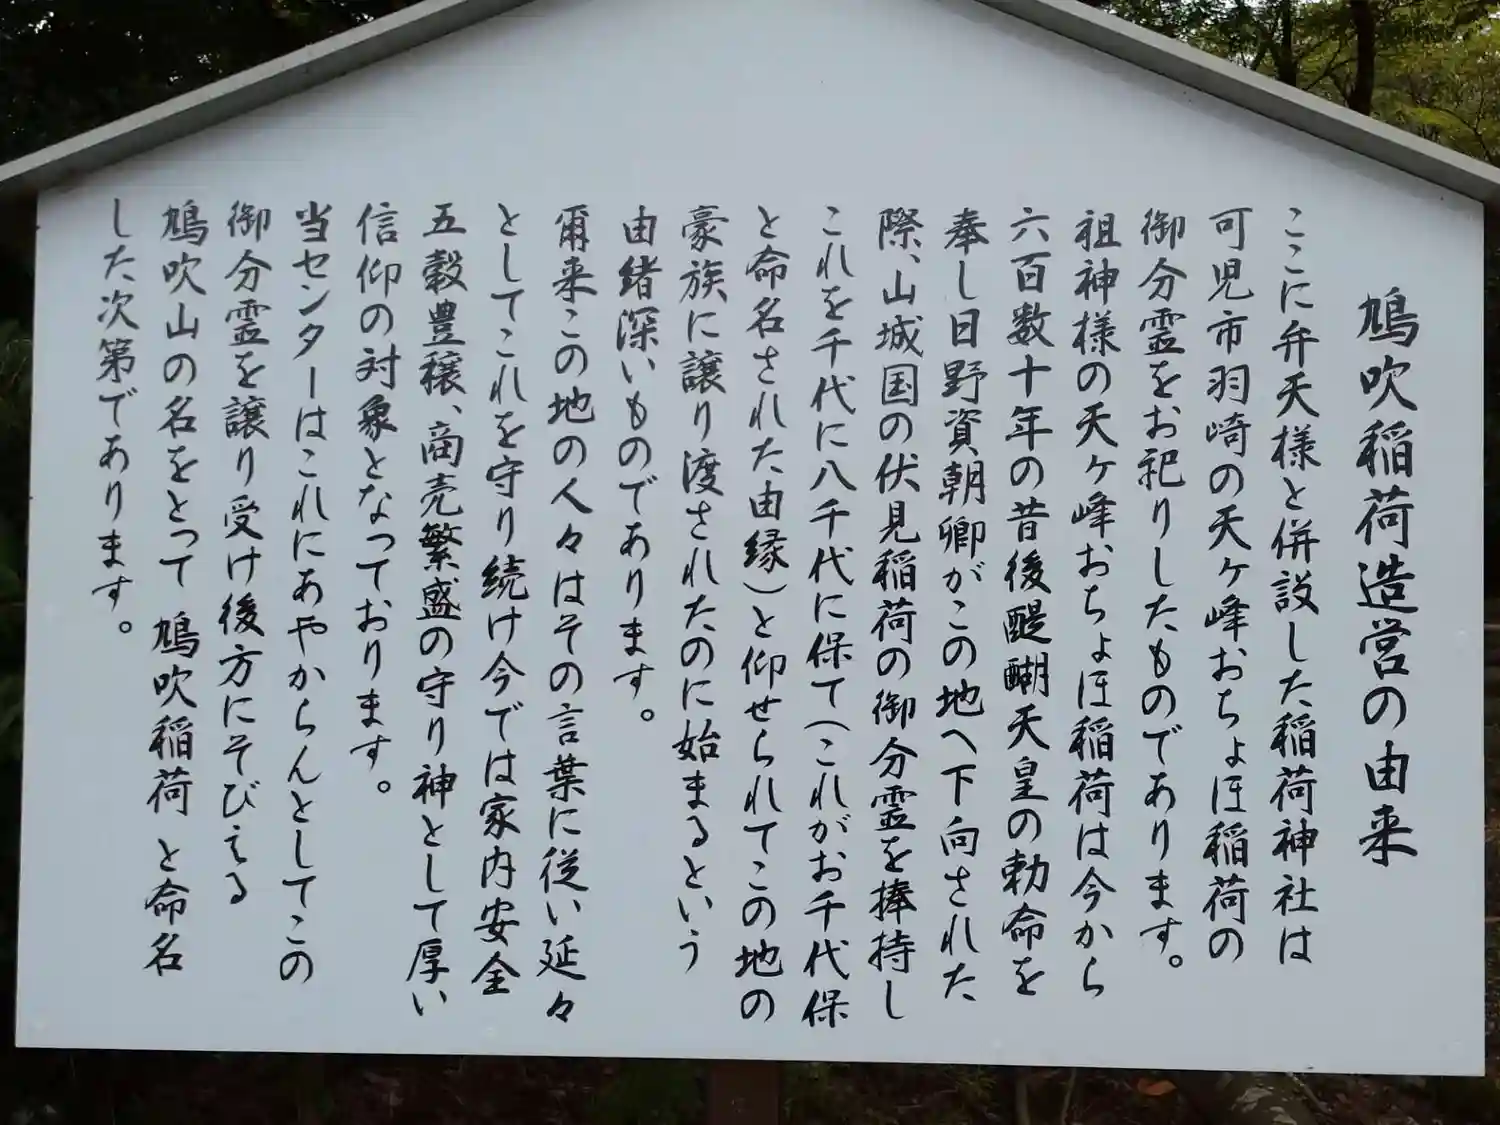 鳩吹稲荷造営の由来
ここに弁天様と併設した稲荷神社は
可児市羽崎の天ヶ峰おちょぼ稲荷の
御分霊をお祀りしたものであります。
祖神様の天ヶ峰おちょぼ稲荷は今から
六百数十年の昔後醍醐天皇の勅命を
奉し日野資朝卿がこの地へ下向された
際、山城国の伏見稲荷の御分霊を捧持し
これを千代に八千代に保て(これがお千代保
と命名された由縁)と仰せられてこの地の
豪族に譲り渡されたのに始まるという
由緒深いものであります。
爾来この地の人々はその言葉に従い延々
としてこれを守り続け今では家内安全
五穀豊穣、商売繁盛の守り神として厚い
信仰の対象となっております。
当センターはこれにあやからんとしてこの
御分霊を譲り受け後方にそびえる
鳩吹山の名をとって 鳩吹稲荷 と命名
した次第であります。